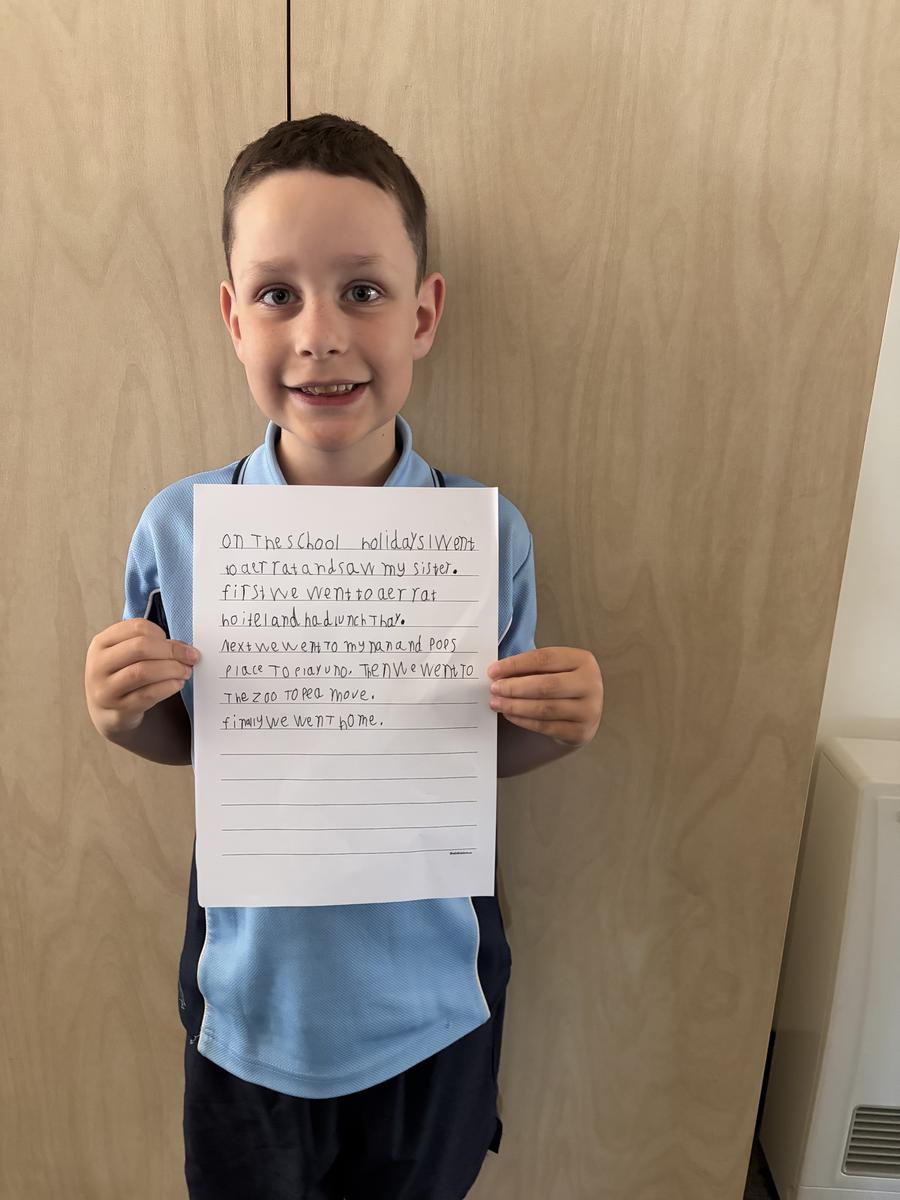 on The school holidays I went
to aerrat and saw my sister.
first we went to aerrat
hoitel and had lunch Thay.
Next we went To my nan and Pops
Place To Play uno. Then we went To
The zoo To Pea move.
finally we went home.